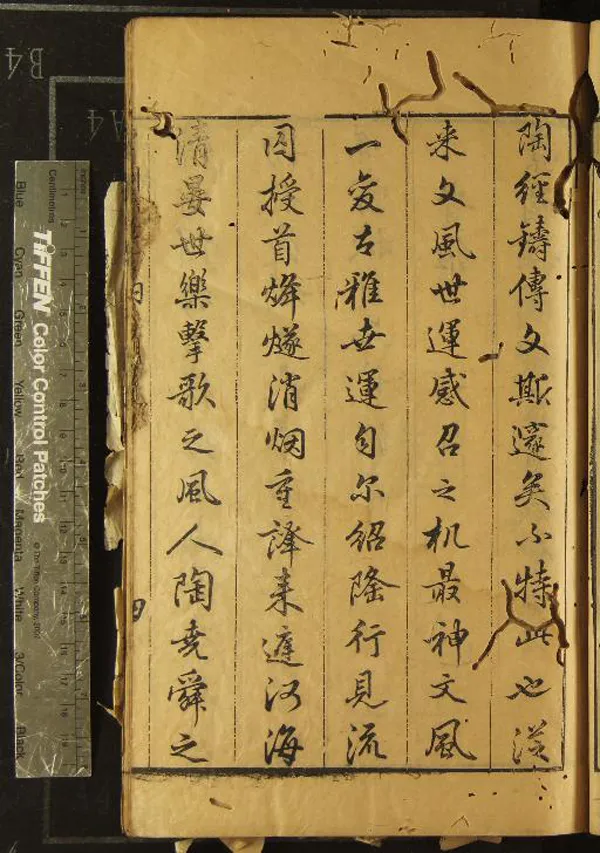 陶經鑄傳文斯邃矣不特此也從
来文風世運感召之机最神文風
一变古雅世運自尔紹隆行見流
囙授首烽燧消烟重譯来遊河海
清晏世樂擊歌之風人陶尭舜之
B4
A4
TIFFEN Color Control Patches
© The Tiffen Company, 2000
Centimetres
Inches
Blue
Cyan
Green
Yellow
Red
Magenta
White
3/Color
Black